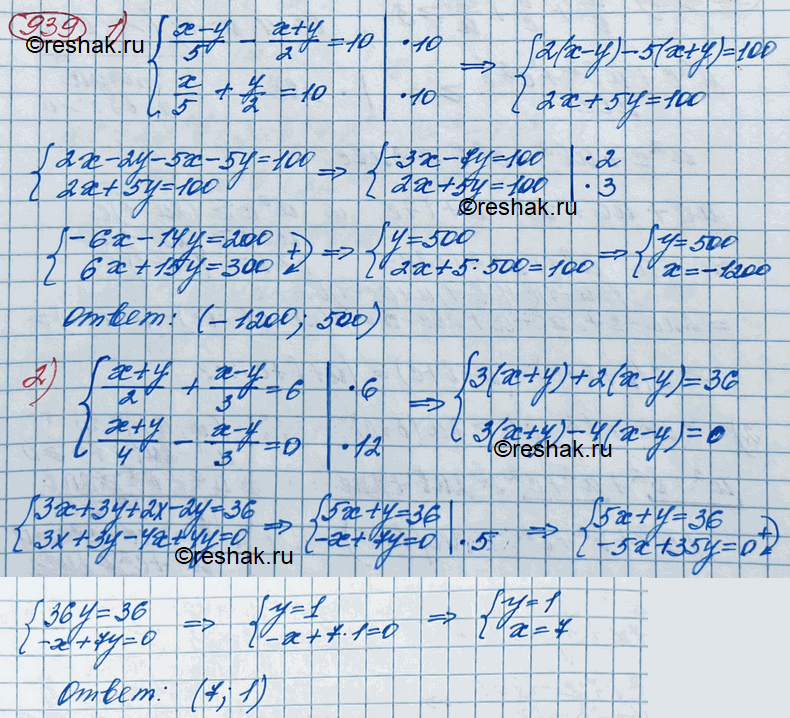 939 1) { (x-y)/5 - (x+y)/2 = 10 | ·10
x/5 + y/2 = 10 | ·10
⇒ { 2(x-y)-5(x+y)=100
2x+5y=100
©reshak.ru
©reshak.ru
{ 2x-2y-5x-5y=100
2x+5y=100
⇒ { -3x-7y=100 | ·2
2x+5y=100 | ·3
©reshak.ru
{ -6x-14y=200
6x+15y=300 +
⇒ { y=500
2x+5·500=100
⇒ { y=500
x=-1200
Ответ: (-1200; 500)
2) { (x+y)/2 + (x-y)/3 = 6 | ·6
(x+y)/4 - (x-y)/3 = 0 | ·12
⇒ { 3(x+y)+2(x-y)=36
3(x+y)-4(x-y)=0
©reshak.ru
{ 3x+3y+2x-2y=36
3x+3y-4x+4y=0
⇒ { 5x+y=36
-x+7y=0 | ·5
⇒ { 5x+y=36
-5x+35y=0 +
©reshak.ru
{ 36y=36
-x+7y=0
⇒ { y=1
-x+7·1=0
⇒ { y=1
x=7
Ответ: (7; 1)